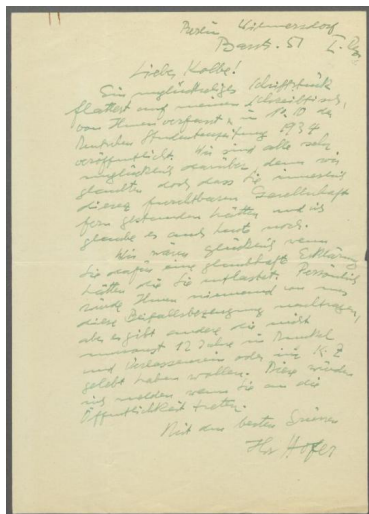 Berlin Wilmersdorf
Barstr. 51
Lieber Kolbe!
Ein unglückseliges Schriftstück
flattert auf meinen Schreibtisch,
von Ihnen verfasst u in No 10 der
Deutschen Studentenzeitung 1934
veröffentlicht. Wir sind alle sehr
unglücklich darüber, denn wir
glaubten doch dass Sie innerlich
dieser furchtbaren Gesellschaft
fern gestanden hätten und ich
glaube es auch heute noch.
Wir wären glücklich wenn
Sie dafür eine glaubhafte Erklärung
hätten die Sie entlastet. Persönlich
würde Ihnen niemand von uns
diese Beifallsbezeugung nachtragen,
aber es gibt andere die nicht
umsonst 12 Jahre in Dunkel
und Verlassensein oder im K.Z
gelebt haben wollen. Diese würden
sich melden wenn Sie an die
Öffentlichkeit treten.
Mit den besten Grüssen
Ihr Hofer